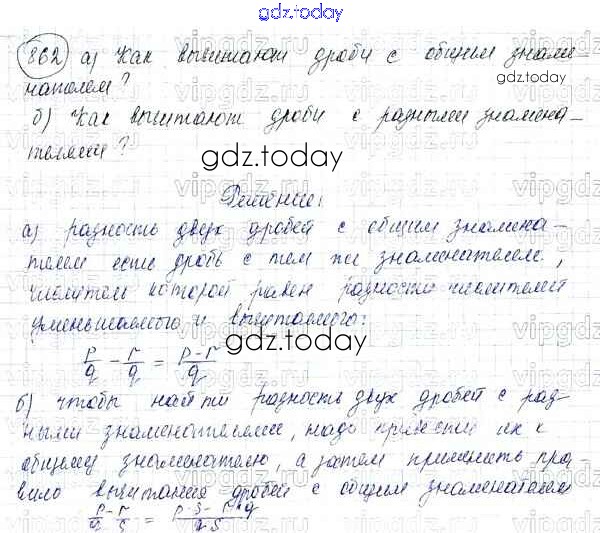 gdz.today
862 а) Как вычитают дроби с общим знаме-
gdz.today
нателем?
б) Как вычитают дроби с разными знамена-
телями?
gdz.today
Решение:
а) разность двух дробей с общим знамена-
телем есть дробь с тем же знаменателем,
числитель которой равен разности числителей
уменьшаемого и вычитаемого:
gdz.today
p/q - r/q = p-r/q
б) чтобы найти разность двух дробей с раз-
ными знаменателями, надо привести их к
общему знаменателю, а затем применить пра-
вило вычитания дробей с общим знаменателем
p/q - r/s = p·s - r·q/q·s